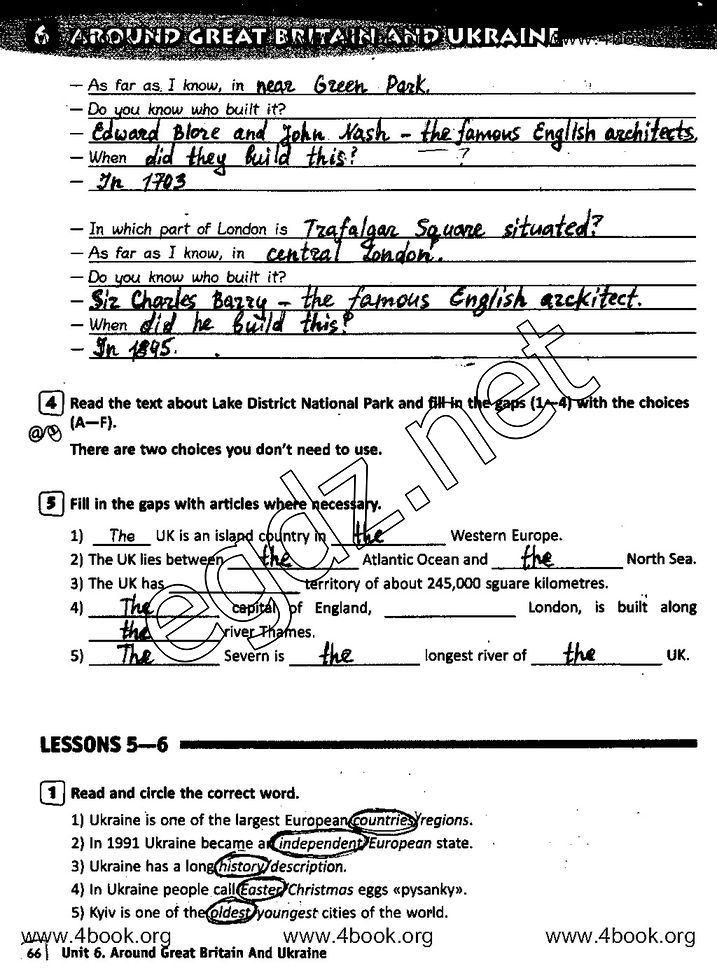 6 AROUND GREAT BRITAIN AND UKRAINE www.4book.org
– As far as I know, in near Green Park.
– Do you know who built it?
– Edward Blore and John Nash – the famous English architects.
– When did they build this? ?
– In 1703
– In which part of London is Trafalgar Square situated?
– As far as I know, in central London.
– Do you know who built it?
– Sir Charles Barry – the famous English arckitect.
– When did he build this?
– In 1895.
4 Read the text about Lake District National Park and fill in the gaps (1—4) with the choices
(A—F).
There are two choices you don't need to use.
5 Fill in the gaps with articles where necessary.
1) The UK is an island country in the Western Europe.
2) The UK lies between the Atlantic Ocean and the North Sea.
3) The UK has ____ territory of about 245,000 sguare kilometres.
4) The capital of England, ____ London, is built along
the river Thames.
5) The Severn is the longest river of the UK.
egdz.net
LESSONS 5—6
1 Read and circle the correct word.
1) Ukraine is one of the largest European countries/regions.
2) In 1991 Ukraine became an independent/European state.
3) Ukraine has a long history/description.
4) In Ukraine people call Easter/Christmas eggs «pysanky».
5) Kyiv is one of the oldest/youngest cities of the world.
www.4book.org www.4book.org www.4book.org
66 Unit 6. Around Great Britain And Ukraine